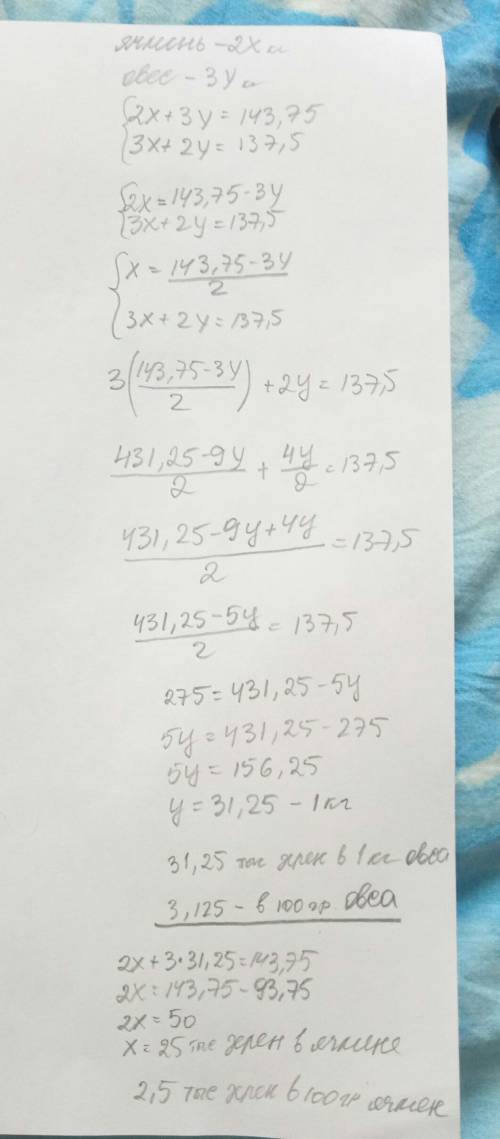 ячмень - 2x кг
овес - 3y кг
{2x + 3y = 143,75
{3x + 2y = 137,5
{2x = 143,75 - 3y
{3x + 2y = 137,5
{x = (143,75 - 3y)/2
{3x + 2y = 137,5
3((143,75 - 3y)/2) + 2y = 137,5
(431,25 - 9y)/2 + 4y/2 = 137,5
(431,25 - 9y + 4y)/2 = 137,5
(431,25 - 5y)/2 = 137,5
275 = 431,25 - 5y
5y = 431,25 - 275
5y = 156,25
y = 31,25 - 1 кг
31,25 тыс в 1 кг овса
3,125 - в 100 гр овса
2x + 3·31,25 = 143,75
2x = 143,75 - 93,75
2x = 50
x = 25 тыс в ячмене
2,5 тыс в 100 гр ячмен